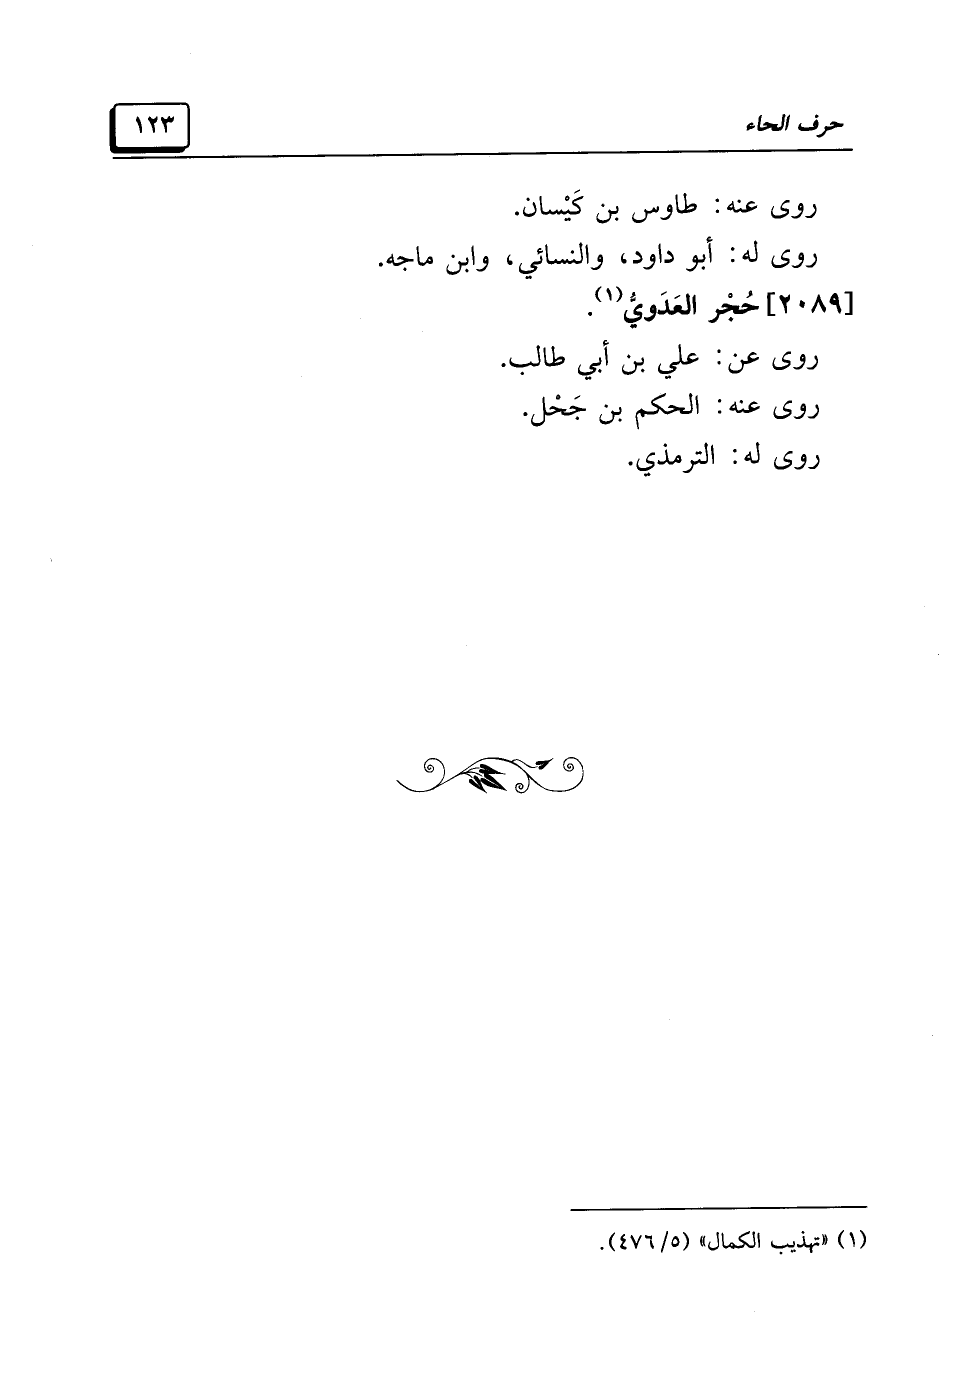 حرف الحاء ١٢٣
روى عنه: طاوس بن كَيْسان.
روى له: أبو داود، والنسائي، وابن ماجه.
[٢٠٨٩] حُجْر العَدَويُّ(١).
روى عن: علي بن أبي طالب.
روى عنه: الحكم بن جَحْل.
روى له: الترمذي.
(١) «تهذيب الكمال» (٥/ ٤٧٦).